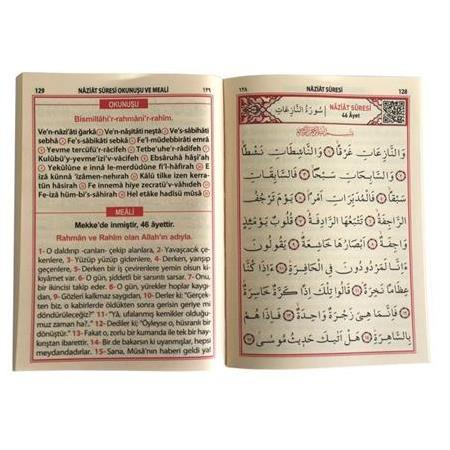 129 NÂZİÂT SÛRESİ OKUNUŞU VE MEALİ ١٢٩
OKUNUŞU
Bismillâhi'r-rahmâni'r-rahîm.
Ve'n-nâzi'âti ğarkâ Ve'n-nâşitâti neştâ Ve's-sâbihâti
sebhâ Fe's-sâbikâti sebkâ Fe'l-müdebbirâti emrâ
Yevme tercüfü'r-râcifeh Tetbe'uhe'r-râdifeh
Kulûbü'y-yevme'izi'v-vâcifeh Ebsâruhâ hâşi'ah
Yekûlûne e innâ le-merdûdûne fi'l-hâfirah E
izâ künnâ 'izâmen-nehirah Kâlû tilke izen kerra-
tün hâsirah Fe innemâ hiye zecratü'v-vâhıdeh
Fe-izâ hüm-bi's-sâhirah Hel etâke hadîsü mûsâ
MEÂLİ
Mekke'de inmiştir, 46 âyettir.
Rahmân ve Rahîm olan Allah'ın adıyla.
1- O daldırıp -canları- çekip alanlara, 2- Yavaşcacık çe-
kenlere, 3- Yüzüp yüzüp gidenlere, 4- Derken, yarışıp
geçenlere, 5- Derken bir iş çevirenlere yemin olsun ki
kıyâmet var. 6- O gün, şiddetli bir sarsıntı sarsar. 7- Onu,
bir ikincisi takip eder. 8- O gün, yürekler hoplar kaygı-
dan, 9- Gözleri kalkmaz saygıdan, 10- Derler ki: "Gerçek-
ten biz, o kabirlerde öldükten sonra gerisin geriy mi
döndürüleceğiz?" 11- "Yâ, ufalanmış kemikler olduğu-
muz zaman ha?.." 12- Dediler ki: "Öyleyse o, hüsranlı bir
dönüştür." 13- Fakat o, zorlu bir kumanda ile tek bir hay-
kırıştan ibarettir. 14- Bir de bakarsın ki uyanmışlar, hepsi
meydandadırlar. 15- Sana, Mûsâ'nın haberi geldi ya!
١٢٨ NÂZİÂT SÛRESİ 128
سُورَةُ النَّازِعَاتِ NÂZİÂT SÛRESİ
46 Âyet
وَالنَّازِعَاتِ غَرْقًا وَالنَّاشِطَاتِ نَشْطًا
وَالسَّابِحَاتِ سَبْحًا فَالسَّابِقَاتِ
سَبْقًا فَالْمُدَبِّرَاتِ اَمْرًا يَوْمَ تَرْجُفُ
الرَّاجِفَةُ تَتْبَعُهَا الرَّادِفَةُ قُلُوبٌ يَوْمَئِذٍ
وَاجِفَةٌ اَبْصَارُهَا خَاشِعَةٌ يَقُولُونَ
ءَاِنَّا لَمَرْدُودُونَ فِي الْحَافِرَةِ ءَاِذَا كُنَّا
عِظَامًا نَخِرَةً قَالُوا تِلْكَ اِذًا كَرَّةٌ خَاسِرَةٌ
فَاِنَّمَا هِيَ زَجْرَةٌ وَاحِدَةٌ فَاِذَا هُمْ
بِالسَّاهِرَةِ هَلْ اَتٰيكَ حَدِيثُ مُوسٰى